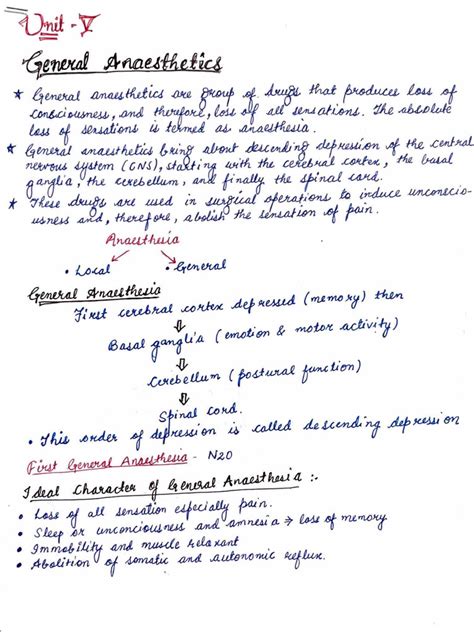 Unit - V
General Anaesthetics
★ General anaesthetics are group of drugs that produces loss of
consciousness, and therefore, loss of all sensations. The absolute
loss of sensations is termed as anaesthesia.
★ General anaesthetics bring about descending depression of the central
nervous system (CNS), starting with the cerebral cortex, the basal
ganglia, the cerebellum, and finally the spinal cord.
★ These drugs are used in surgical operations to induce unconsciou-
usness and, therefore, abolish the sensation of pain.
Anaesthesia
• Local • General
General Anaesthesia
First cerebral cortex depressed (memory) then
⇓
Basal ganglia (emotion & motor activity)
⇓
Cerebellum (postural function)
⇓
Spinal cord.
• This order of depression is called descending depression
First General Anaesthesia - N2O
Ideal Character of General Anaesthesia :-
• Loss of all sensation especially pain.
• Sleep or unconciousness and amnesia ⇒ loss of memory
• Immobility and muscle relaxant
• Abolition of somatic and autonomic reflux.